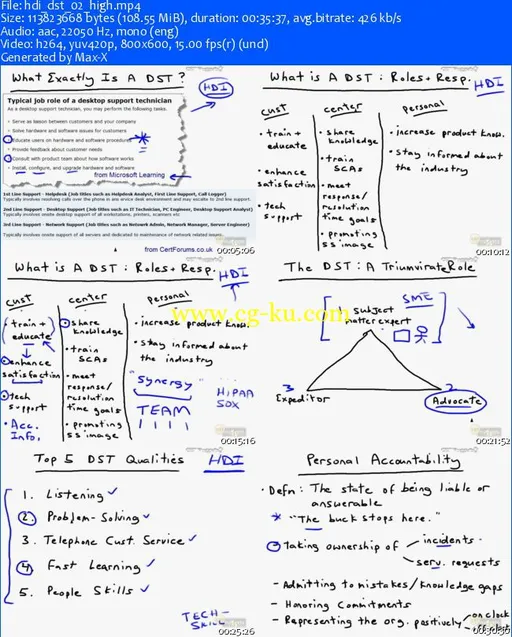 File: hdi_dst_02_high.mp4
Size: 113823668 bytes (108.55 MiB), duration: 00:35:37, avg.bitrate: 426 kb/s
Audio: aac, 22050 Hz, mono (eng)
Video: h264, yuv420p, 800x600, 15.00 fps(r) (und)
Generated by Max-X
What Exactly Is A DST?
HDI
Typical job role of a desktop support technician
As a desktop support technician, you may perform the following tasks.
• Serve as liaison between customers and your company
• Solve hardware and software issues for customers
Educate users on hardware and software procedures
• Provide feedback about customer needs
Consult with product team about how software works
• Install, configure, and upgrade hardware and software
from Microsoft Learning
1st Line Support - Helpdesk (Job titles such as Helpdesk Analyst, First Line Support, Call Logger)
Typically involves resolving calls over the phone in any service desk environment and may escalate to 2nd line support.
2nd Line Support - Desktop Support (Job titles such as IT Technician, PC Engineer, Desktop Support Analyst)
Typically involves onsite desktop support of all workstations, printers, scanners etc
3rd Line Support - Network Support (Job titles such as Network Admin, Network Manager, Server Engineer)
Typically involves onsite support of all servers and dedicated to maintenance of network related issues.
from CertForums.co.uk
00:05:06
What is A DST: Roles + Resp.
HDI
cust
• train + educate
• enhance satisfaction
• tech support
center
• share knowledge
• train SCAs
• meet response/ resolution time goals
• promoting SS image
personal
• increase product know.
• stay informed about the industry
00:10:12
What is A DST: Roles + Resp.
HDI
cust
(train + educate)
• enhance satisfaction
• tech support
• Acc. Info.
center
• share knowledge
• train SCAs
• meet response/ resolution time goals
• promoting SS image
personal
• increase product know.
• stay informed about the industry
"synergy"
TEAM
HIPAA
SOX
00:15:16
The DST: A Triumvirate Role
SME
1. subject matter expert
3
Expeditor
2
Advocate
00:21:52
www.cg-ku.com
Top 5 DST Qualities
HDI
1. Listening ✓
2. Problem-Solving ✓
3. Telephone Cust. Service ✓
4. Fast Learning ✓
5. People Skills ✓
TECH-SKILL
00:25:26
Personal Accountability
• Defn: The state of being liable or answerable
* "The buck stops here."
Taking ownership of
incidents
serv. requests
- Admitting to mistakes/knowledge gaps
- Honoring Commitments
- Representing the org. positively
on clock